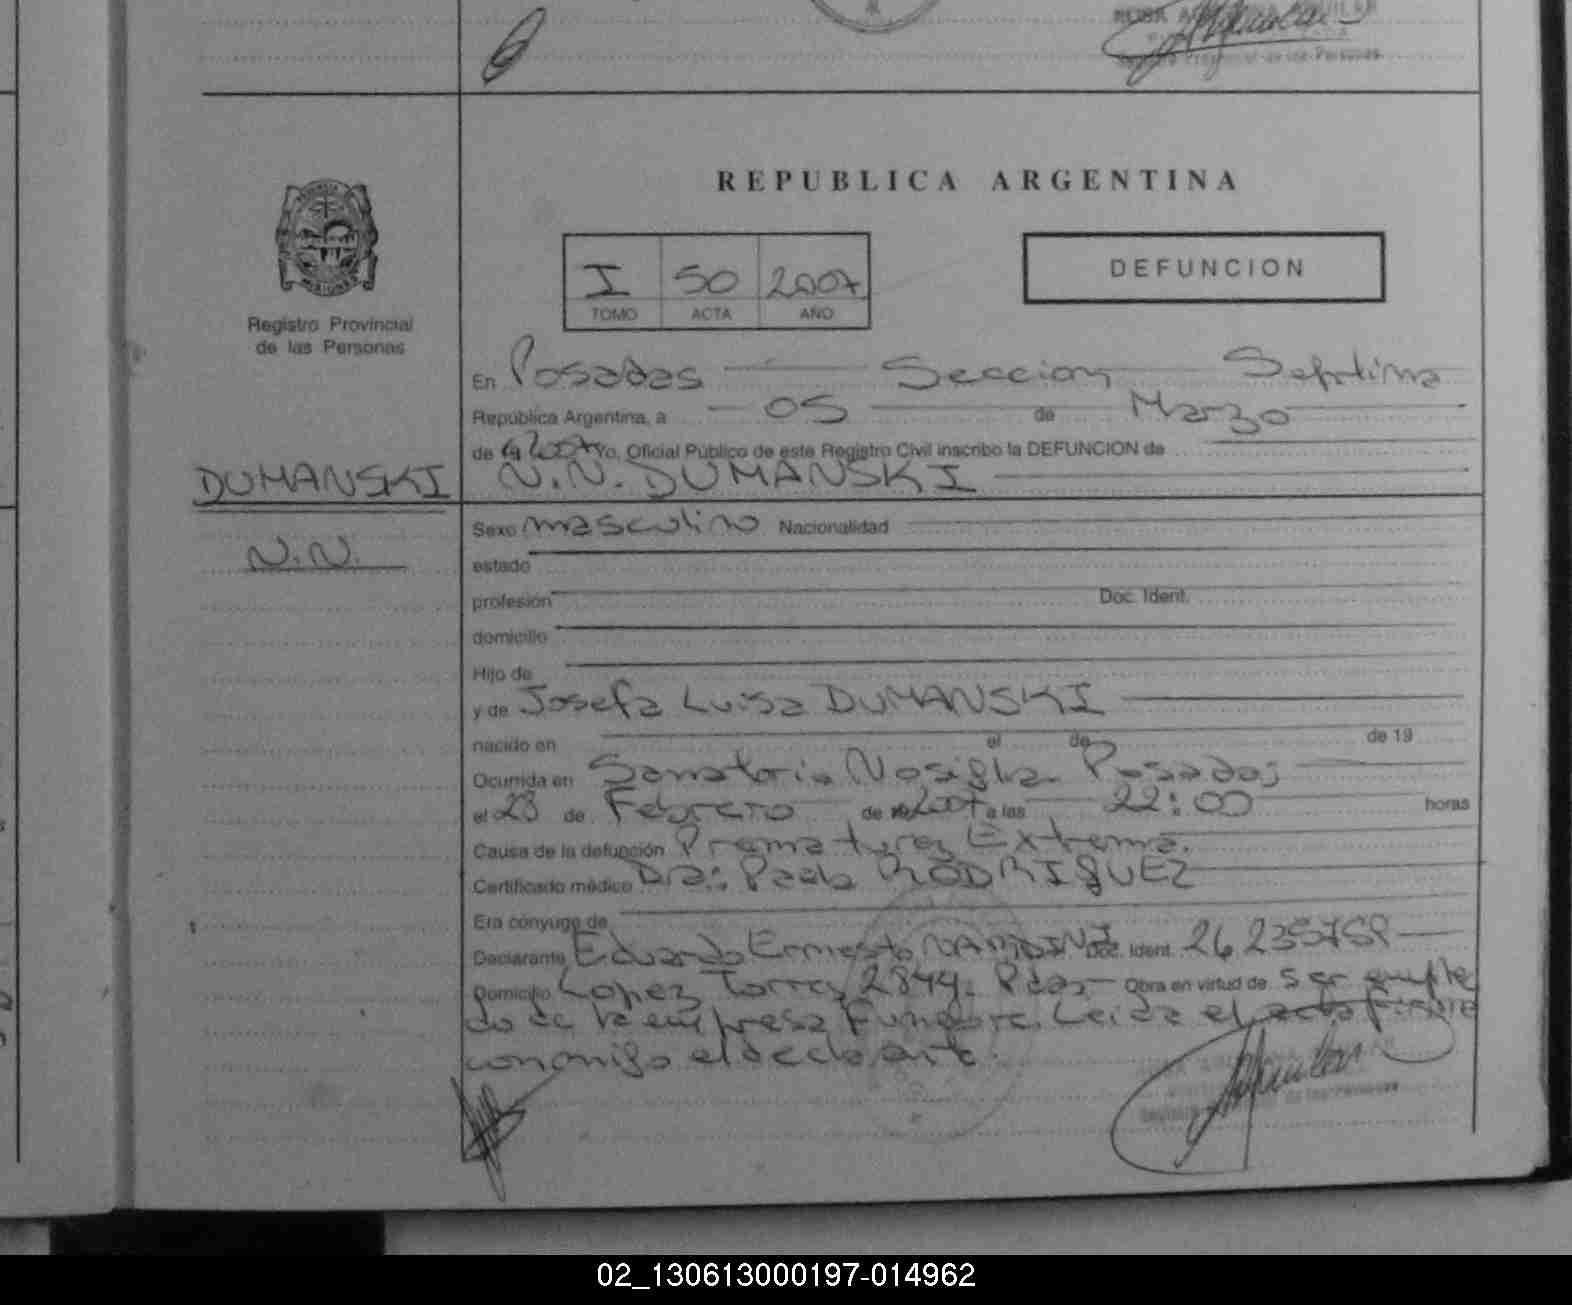 REPUBLICA ARGENTINA
I 50 2007
TOMO ACTA AÑO
DEFUNCION
Registro Provincial
de las Personas
En Posadas Seccion Septima
República Argentina, a 05 de Marzo
de 2007 Yo, Oficial Público de este Registro Civil inscribo la DEFUNCION de
DUMANSKI N.N. DUMANSKI
Sexo masculino Nacionalidad
N.N.
estado
profesión Doc. Ident.
domicilio
Hijo de
y de Josefa Luisa DUMANSKI
nacido en el de de 19
Ocurrida en Sanatorio Nosiglia Posadas
el 28 de Febrero de 2007 a las 22:00 horas
Causa de la defunción Prematurez Extrema.
Certificado médico Dra: Paola RODRIGUEZ
Era cónyuge de
Declarante Eduardo Ernesto Doc. Ident.
Domicilio Lopez Torres 2849. Pdas Obra en virtud de ser emplea
do de la empresa Funebre. Leida el acta firma
conmigo el declarante.
02_130613000197-014962